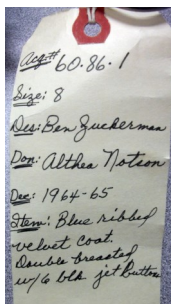 Acq# 60.86.1
Size: 8
Des: Ben Zuckerman
Don: Althea Notson
Dec: 1964-65
Item: Blue ribbed
velvet coat.
Double breasted
w/6 blk jet buttons